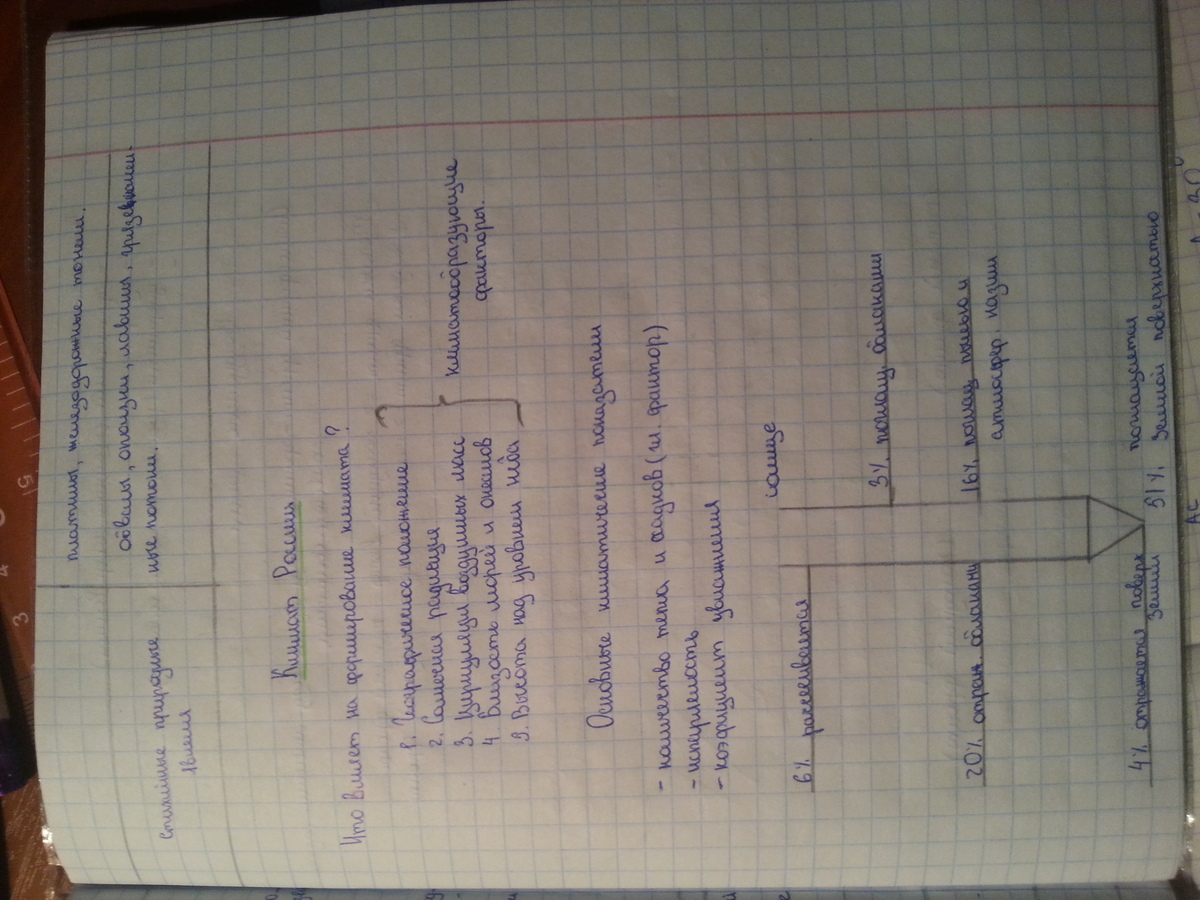 плотины, железнодорожные тоннели.
Стихийные природные явления
обвалы, оползни, лавины, грязекамен-
ные потоки.
Климат России
Что влияет на формирование климата?
1. Географическое положение
2. Солнечная радиация
3. Циркуляция воздушных масс
4 Близость морей и океанов
5. Высота над уровнем моря
климатообразующие
факторы.
Основные климатические показатели
- количество тепла и осадков (гл. фактор)
- испаряемость
- коэфициент увлажнения
солнце
6% рассеивается
3% поглощ. облаками
20% отраж облаками
16% поглощ пылью и
атмосфер. газами
4% отражается поверх
Земли
51% поглощается
Земной поверхностью